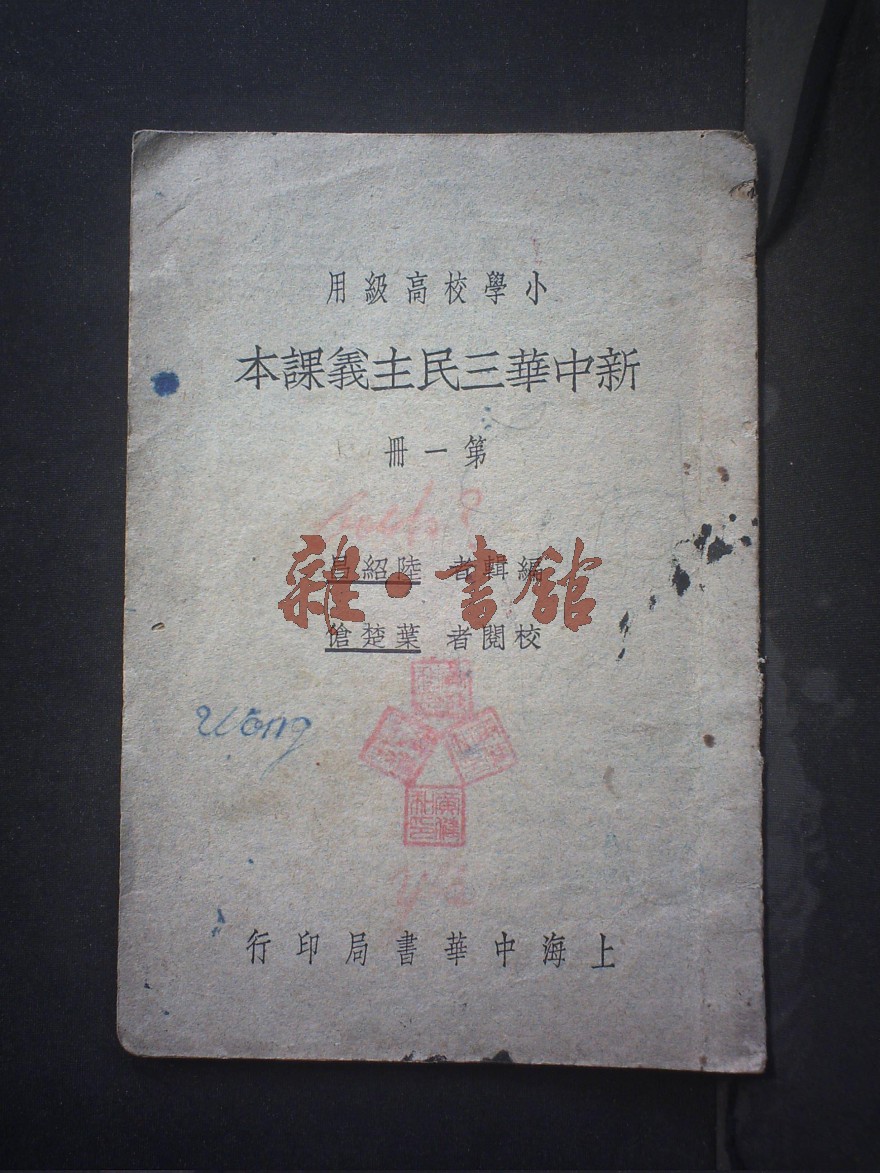 小學校高級用
新中華三民主義課本
第一冊
編輯者 陸紹昌
校閱者 葉楚傖
雜·書館
wong
上海中華書局印行